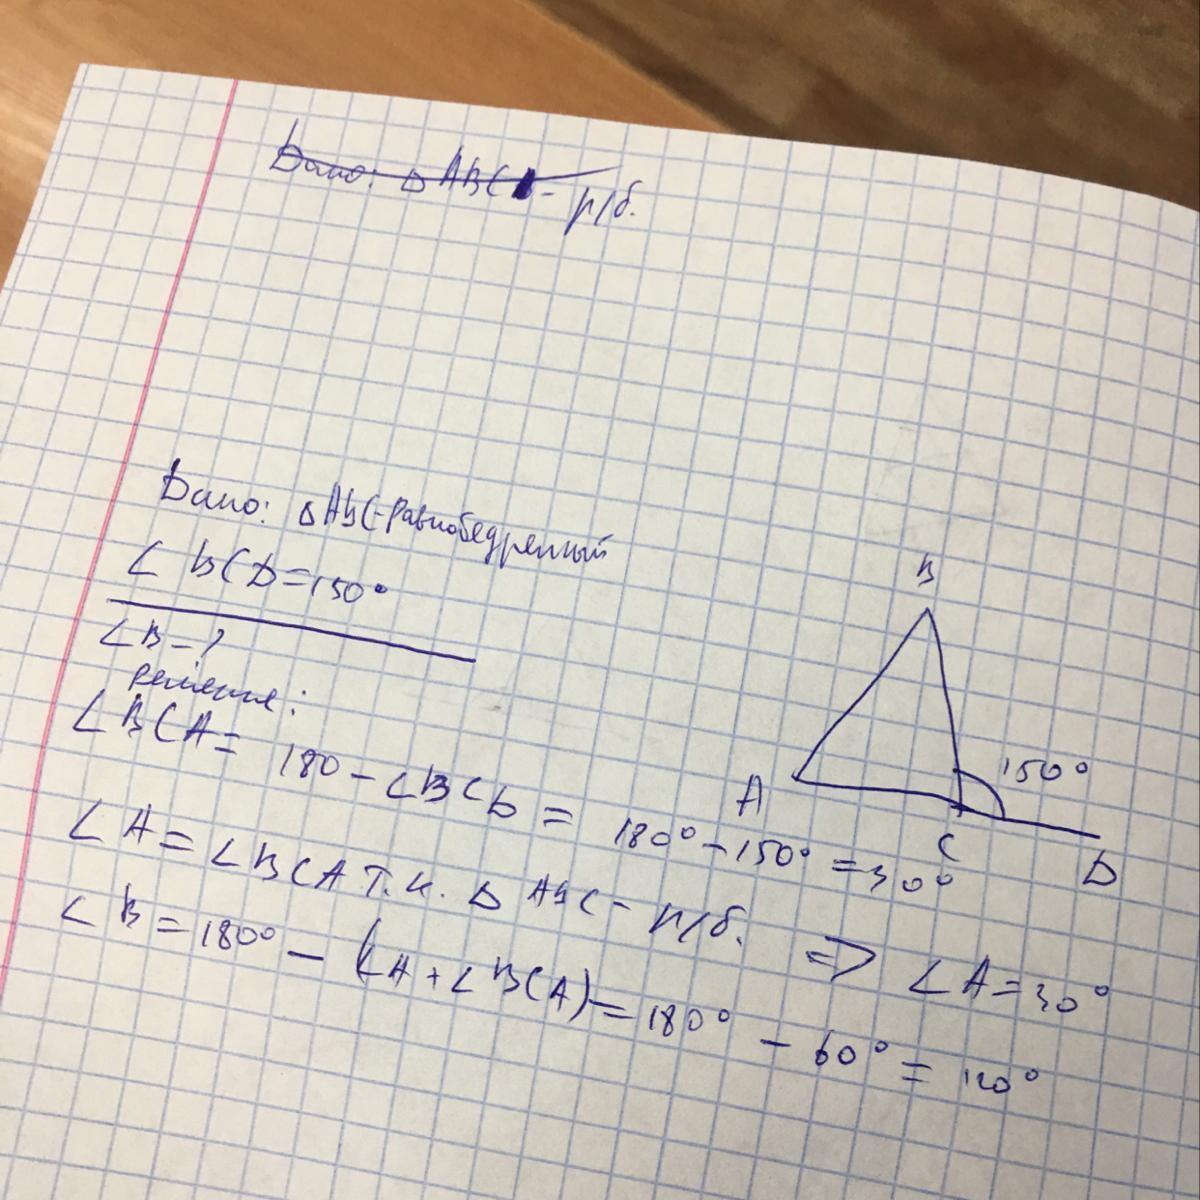 Дано: △ABC - р/б.
Дано: △ABC-равнобедренный
∠ BCD=150°
∠B-?
решение:
∠BCA= 180-∠BCD = 180°-150°=30°
∠A=∠BCA т.к. △ABC- р/б. => ∠A=30°
∠B=180° - (∠A+∠BCA)=180° - 60°= 120°
B
A
C
D
150°